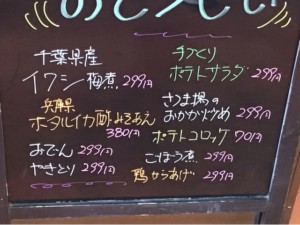 千葉県産
イワシ梅煮 299円
兵庫県
ホタルイカ酢みそあえ
380円
おでん 299円
やきとり 299円
手づくり
ポテトサラダ 299円
さつま揚の
おかか炒め 299円
ポテトコロッケ 70円
ごぼう煮 299円
鶏からあげ 299円